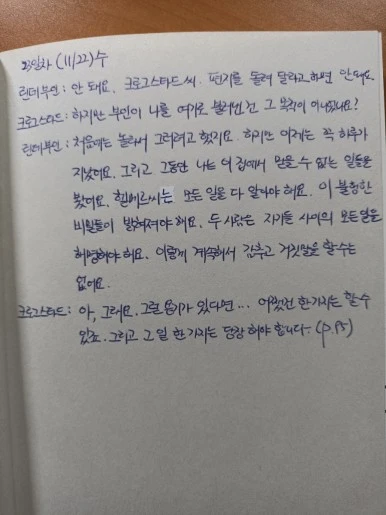 23일차 (11/22) 수
린데부인: 안 돼요. 크로그스타드 씨. 편지를 돌려 달라고 하면 안돼요.
크로그스타드: 하지만 부인이 나를 여기로 불러낸 건 그 목적이 아니었나요?
린데부인: 처음에는 놀라서 그러려고 했지요. 하지만 이제는 꼭 하루가
지났어요. 그리고 그동안 나는 이 집에서 믿을 수 없는 일들을
봤어요. 헬메르씨는 모든 일을 다 알아야 해요. 이 불행한
비밀들이 밝혀져야 해요. 두 사람은 자기들 사이의 모든 일을
해명해야 해요. 이렇게 계속해서 감추고 거짓말을 할 수는
없어요.
크로그스타드: 아, 그래요. 그럴 용기가 있다면... 어쨌건 한가지는 할 수
있죠. 그리고 그 일 한 가지는 당장 해야 합니다. (p.95)